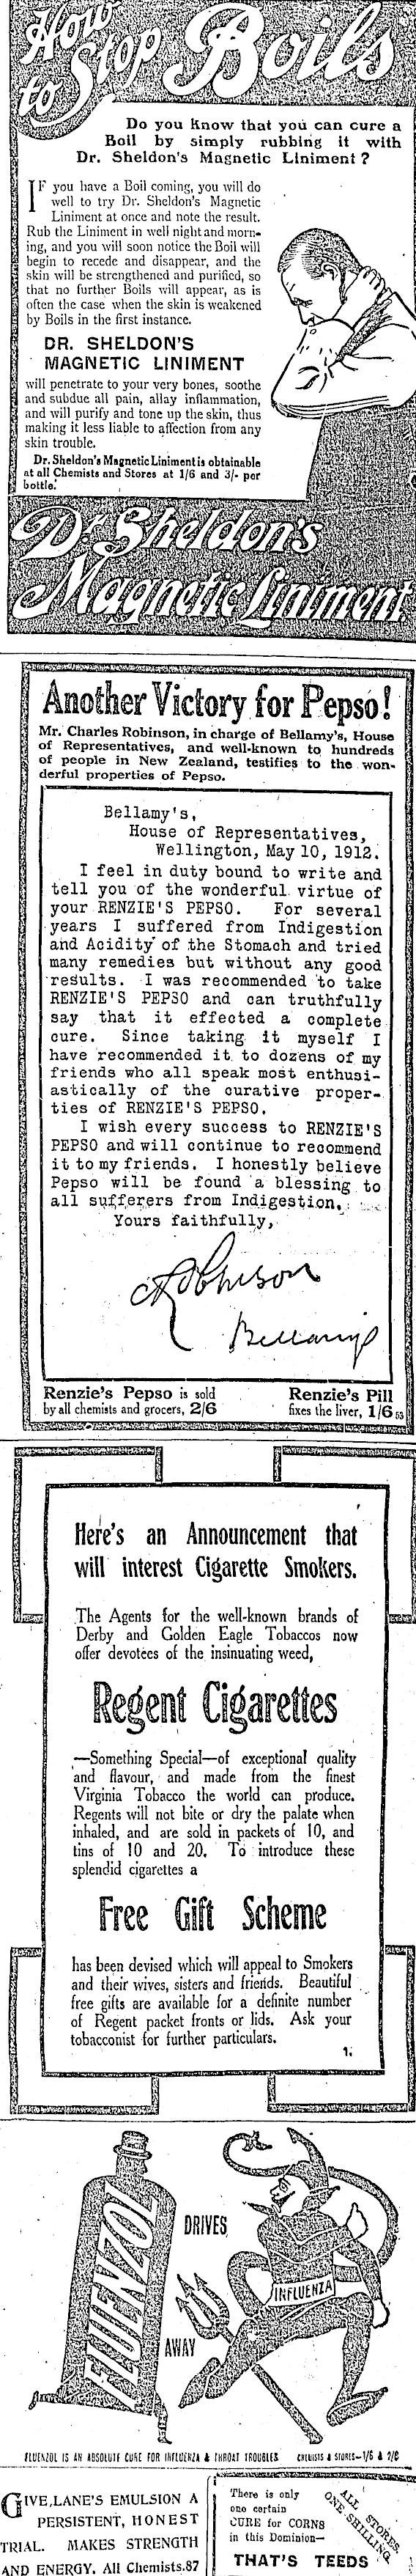 How
to Stop Boils
Do you know that you can cure a
Boil by simply rubbing it with
Dr. Sheldon's Magnetic Liniment?
IF you have a Boil coming, you will do
well to try Dr. Sheldon's Magnetic
Liniment at once and note the result.
Rub the Liniment in well night and morn-
ing, and you will soon notice the Boil will
begin to recede and disappear, and the
skin will be strengthened and purified, so
that no further Boils will appear, as is
often the case when the skin is weakened
by Boils in the first instance.
DR. SHELDON'S
MAGNETIC LINIMENT
will penetrate to your very bones, soothe
and subdue all pain, allay inflammation,
and will purify and tone up the skin, thus
making it less liable to affection from any
skin trouble.
Dr. Sheldon's Magnetic Liniment is obtainable
at all Chemists and Stores at 1/6 and 3/- per
bottle.
Dr Sheldon's
Magnetic Liniment
Another Victory for Pepso!
Mr. Charles Robinson, in charge of Bellamy's, House
of Representatives, and well-known to hundreds
of people in New Zealand, testifies to the won-
derful properties of Pepso.
Bellamy's,
House of Representatives,
Wellington, May 10, 1912.
I feel in duty bound to write and
tell you of the wonderful virtue of
your RENZIE'S PEPSO. For several
years I suffered from Indigestion
and Acidity of the Stomach and tried
many remedies but without any good
results. I was recommended to take
RENZIE'S PEPSO and can truthfully
say that it effected a complete
cure. Since taking it myself I
have recommended it to dozens of my
friends who all speak most enthusi-
astically of the curative proper-
ties of RENZIE'S PEPSO.
I wish every success to RENZIE'S
PEPSO and will continue to recommend
it to my friends. I honestly believe
Pepso will be found a blessing to
all sufferers from Indigestion.
Yours faithfully,
C Robinson
Bellamys
Renzie's Pepso is sold
by all chemists and grocers, 2/6
Renzie's Pill
fixes the liver, 1/6 53
Here's an Announcement that
will interest Cigarette Smokers.
The Agents for the well-known brands of
Derby and Golden Eagle Tobaccos now
offer devotees of the insinuating weed,
Regent Cigarettes
—Something Special—of exceptional quality
and flavour, and made from the finest
Virginia Tobacco the world can produce.
Regents will not bite or dry the palate when
inhaled, and are sold in packets of 10, and
tins of 10 and 20. To introduce these
splendid cigarettes a
Free Gift Scheme
has been devised which will appeal to Smokers
and their wives, sisters and friends. Beautiful
free gifts are available for a definite number
of Regent packet fronts or lids. Ask your
tobacconist for further particulars.
1.
FLUENZOL
DRIVES
AWAY
INFLUENZA
FLUENZOL IS AN ABSOLUTE CURE FOR INFLUENZA & THROAT TROUBLES CHEMISTS & STORES—1/6 & 2/6
GIVE LANE'S EMULSION A
PERSISTENT, HONEST
TRIAL. MAKES STRENGTH
AND ENERGY. All Chemists. 87
There is only
one certain
CURE for CORNS
in this Dominion—
THAT'S TEEDS
ALL STORES,
ONE SHILLING.